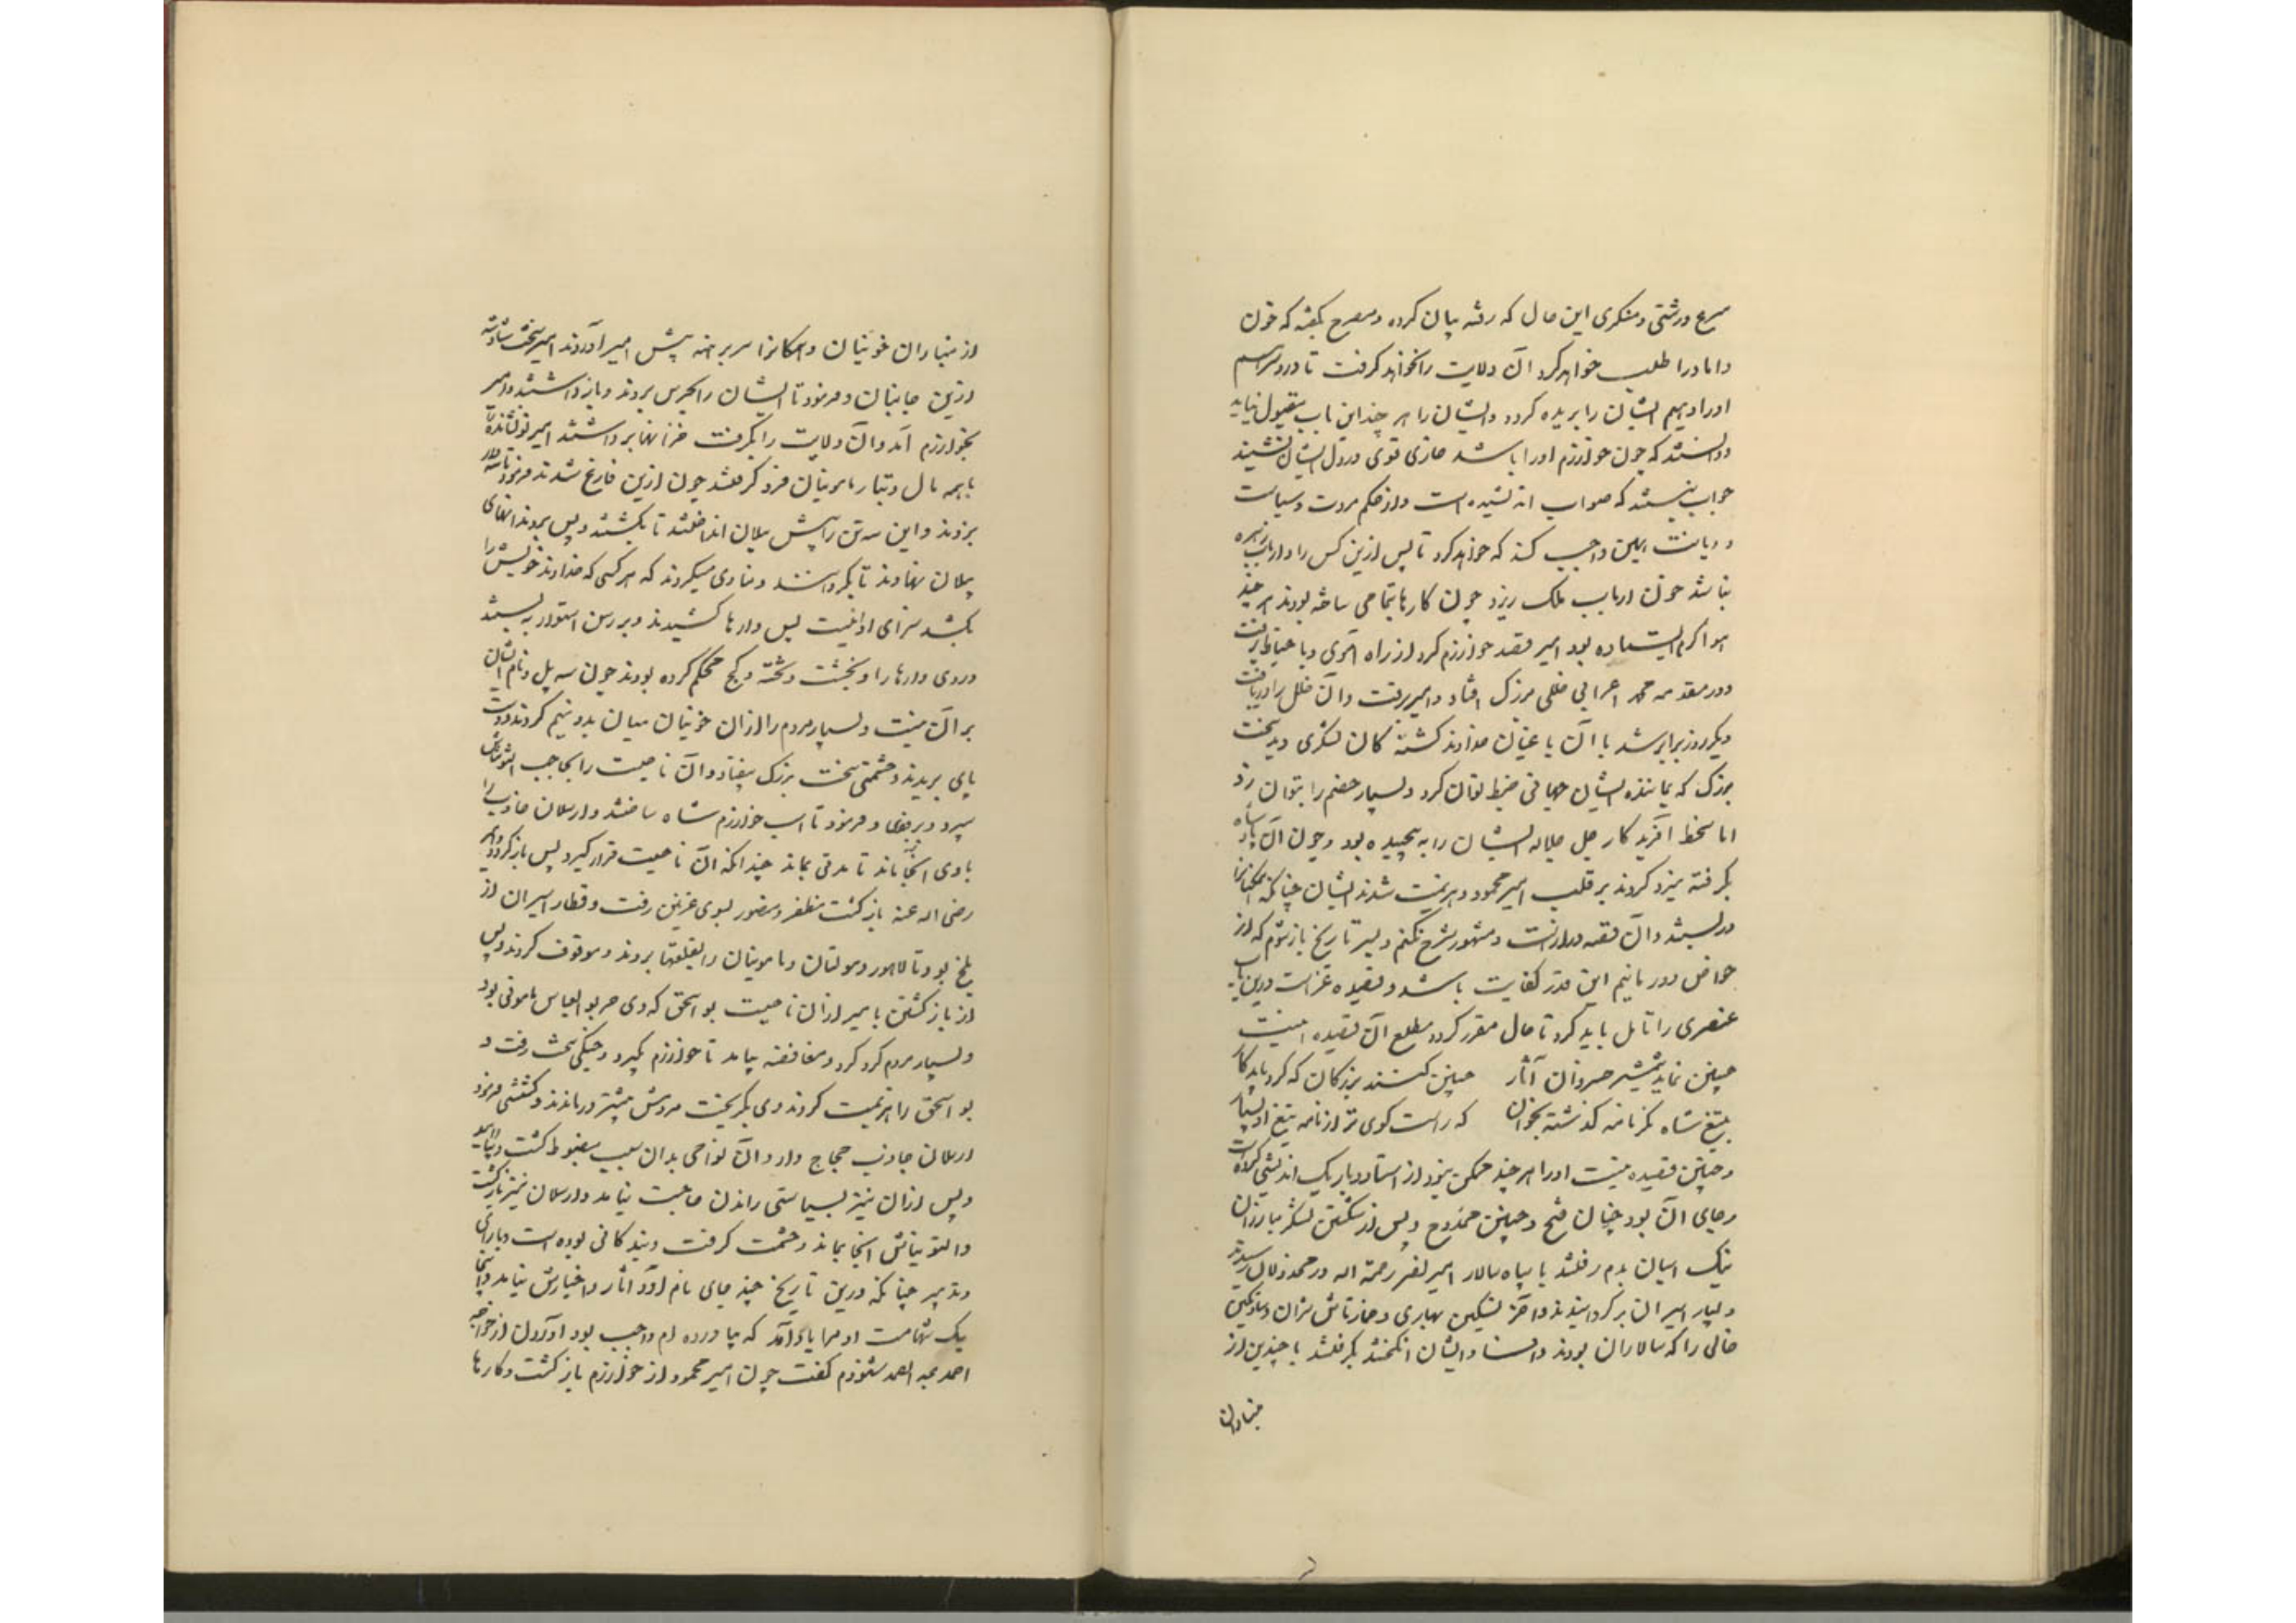 شرع درشتی و منکری این حال که رفته بیان کرده و مصرح بگفته که خون
داماد را طلب خواهد کرد و آن ولایت را بخواهد گرفت تا درد سر
او را دیهم ایشان را بریده گردد و ایشان را هر چند این باب مقبول نیاید
و دانستند که چون خوارزم او را باشد خاری قوی در دل ایشان نشیند
جواب نبشتند که صواب اندیشیده است و از حکم مروت و سیاست
و دیانت همین واجب کند که خواهد کرد تا پس ازین کس را از اذناب زهره
نباشد خون ارباب ملک ریزد چون کارها بتمامی ساخته بودند هر چند
هوا گرم ایستاده بود امیر قصد خوارزم کرد از راه آموی و با حتیاط برفت
و در مقدمه محمد اعرابی خللی بزرک افتاد و امیر برفت و آن خلل را دریافت
و دیکر روز برابر شد با آن باغیان خداوند کشته کان لشکری دید سخت
بزرک که بمانند ایشان جهانی ضبط توان کرد و بسیار خصم را بتوان زد
اما سخط آفریدکار جل جلاله ایشان را به پیچیده بود و خون آن پادشاه
بگرفته نیرد کردند بر قلب امیر محمود و هزیمت شدند ایشان چنانکه همکنانرا
در بستند و آن قصه دراز است و مشهور شرح نکنم و بسر تاریخ باز شوم که از
حواض دور مانیم این قدر کفایت باشد و قصیده غراست درین باب
عنصری را تامل باید کرد تا حال مقرر کردد مطلع آن قصیده اینست
چنین نماید شمشیر خسروان آثار   چنین کنند بزرکان که کرد باید کار
بتیغ شاه نکر نامه کذشته بخوان   که راست کوی تر از نامه تیغ او بسیار
و چنین قصیده نیست او را هر چند ممکن نبود از استاد و باریک اندیشی کرده است
و جای آن بود چنان فتح و چنین ممدوح و پس از شکستن لشکر مبارزان
نیک اسپان بدم رفتند با سپاه سالار امیر نصر رحمة الله و در مخذولان رسیدند
و بسیار اسیران بر کردانیدند و آخر الپتکین بخاری و خمارتاش شرابی و ساوتکین
خانی را که سالاران بودند و فساد ایشان انکیختند بکرفتند با چندین از
مبارزان
از مبارزان خونیان و همکانرا سر برهنه پیش امیر آوردند امیر سخت شاد شد
ازین جانیان و فرمود تا ایشان را بحرس بردند و باز داشتند و امیر
بخوارزم آمد و آن ولایت را بگرفت و خزانها برداشتند امیر نو نشانده را
با همه مال و تبار مامونیان فرو کرفتند چون ازین فارغ شدند فرمود تا سه دار
بزدند و این سه تن را پیش پیلان انداختند تا بکشتند و پس بر دندانهای
پیلان نهادند تا بکردانیدند و منادی میکردند که هر کسی که خداوند خویش را
بکشد سزای او اینست پس بر دارها کشیدند و برسن استوار به بستند
و روی دارها را بخشت و پخته و کچ محکم کرده بودند چون سه پل و نام ایشان
بر آن نبشت و بسیار مردم را از آن خونیان میان بدو نیم کردند و دست
پای بریدند و حشمتی سخت بزرک بیفتاد و آن ناحیت را بحاجب التونتاش
سپرد و برجای و فرمود تا اسب خوارزم شاه ساختند و ارسلان جاذب را
با وی آنجا ماند تا مدتی بماند چندانکه آن ناحیت قرار کیرد پس باز کردد و امیر
رضی الله عنه باز کشت مظفر و منصور بسوی غزنین رفت و قطار اسیران از
بلخ بود تا لاهور و مولتان و مامونیان را بقلعتها بردند و موقوف کردند و پس
از باز کشتن با میر از آن ناحیت بو اسحق که وی خسر بو العباس مامونی بود
و بسیار مردم کرد کرد و مغافصه بیامد تا خوارزم بکیرد و جنکی سخت رفت و
بو اسحق را هزیمت کردند و وی بکریخت و مردمش بیشتر درماندند و کشتنی فرمود
ارسلان جاذب حجاج وار و آن نواحی بدان سبب مضبوط کشت و بیارامید
و پس ازان نیز بسیاستی راندن حاجت نیامد و ارسلان نیز باز کشت
و التونتاش آنجا بماند و حشمت کرفت و بنده کافی بوده است و با رای
و تدبیر چنانکه درین تاریخ چند جای نام او و آثار و اخبارش بیامد و اینجا
یک شهامت او مرا یاد آمد که بیاورده ام و واجب بود آوردن از خواجه
احمد عبد الصمد شنودم گفت چون امیر محمود از خوارزم باز کشت و کارها